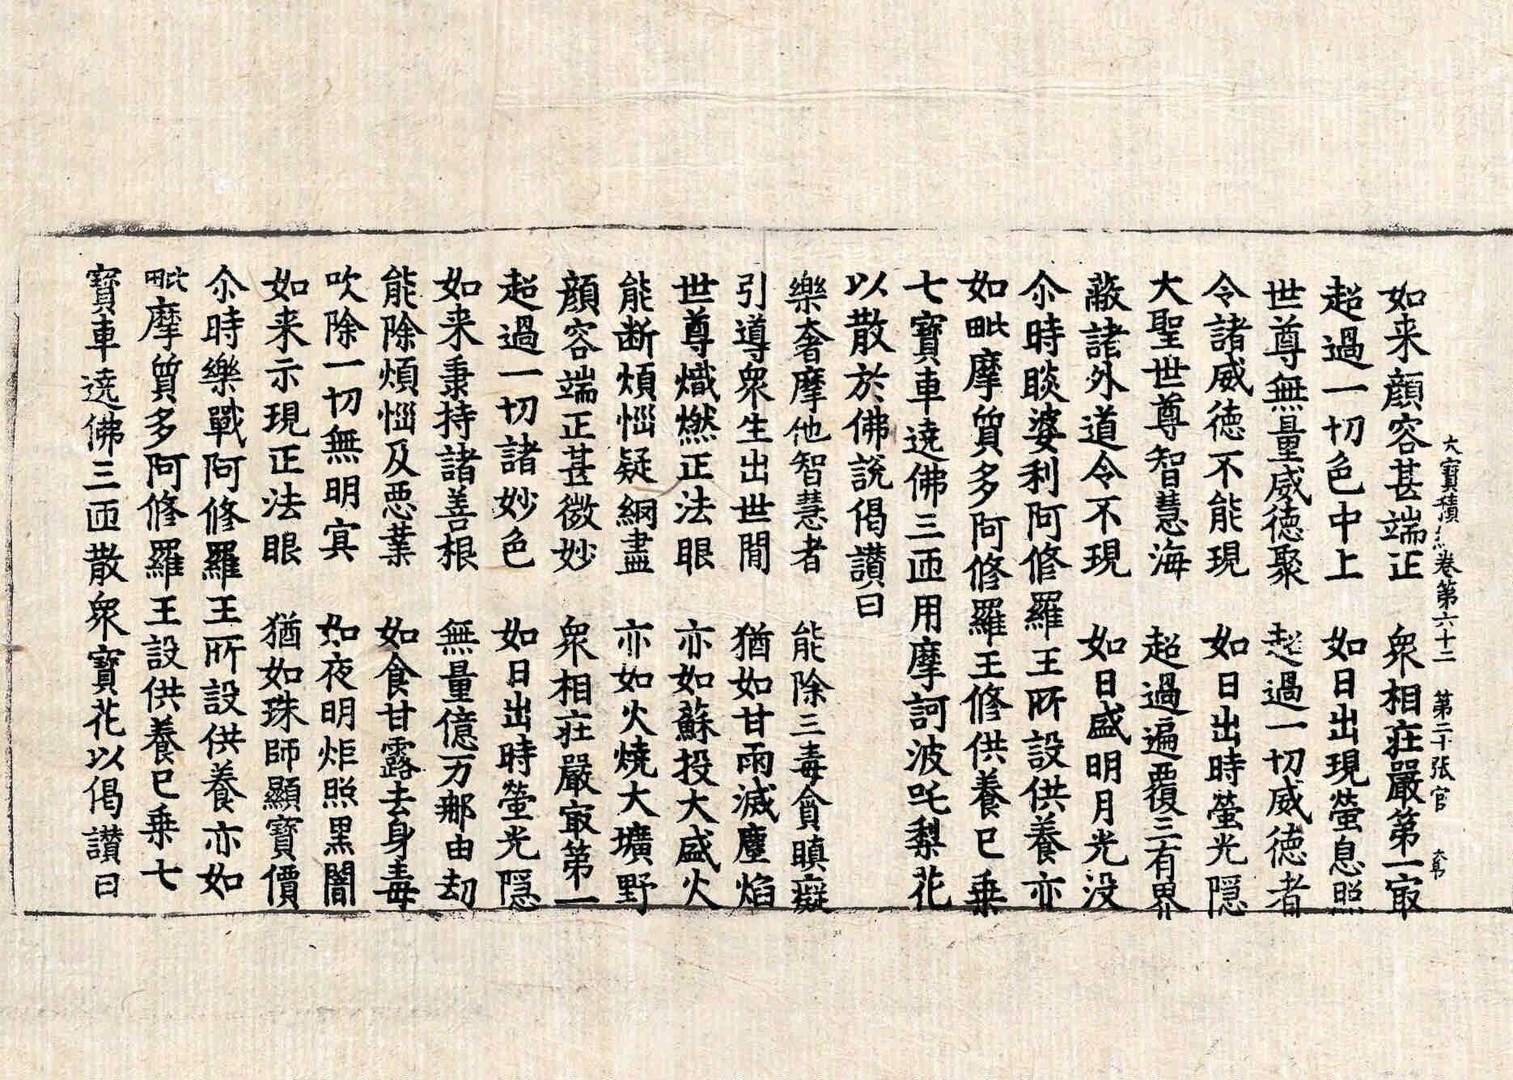 大寶積經卷第六十二　第二十張官
如来顔容甚端正　衆相莊嚴第一㝡
超過一切色中上　如日出現螢息照
世尊無量威徳聚　超過一切威徳者
令諸威徳不能現　如日出時螢光隠
大聖世尊智慧海　超過遍覆三有界
蔽諸外道令不現　如日盛明月光没
尒時睒婆利阿修羅王所設供養亦
如毗摩質多阿修羅王修供養已乗
七寶車遶佛三匝用摩訶波吒梨花
以散於佛說偈讃曰
樂奢摩他智慧者　能除三毒貪瞋癡
引導衆生出世閒　猶如甘雨滅塵焰
世尊熾燃正法眼　亦如蘇投大盛火
能断煩惱疑網盡　亦如火燒大壙野
顔容端正甚微妙　衆相莊嚴㝡第一
超過一切諸妙色　如日出時螢光隠
如来秉持諸善根　無量億万那由劫
能除煩惱及悪業　如食甘露去身毒
吹除一切無明冥　如夜明炬照黒闇
如来示現正法眼　猶如珠師顯寶價
尒時樂戰阿修羅王所設供養亦如
毗摩質多阿修羅王設供養已乗七
寶車遶佛三匝散衆寶花以偈讃曰